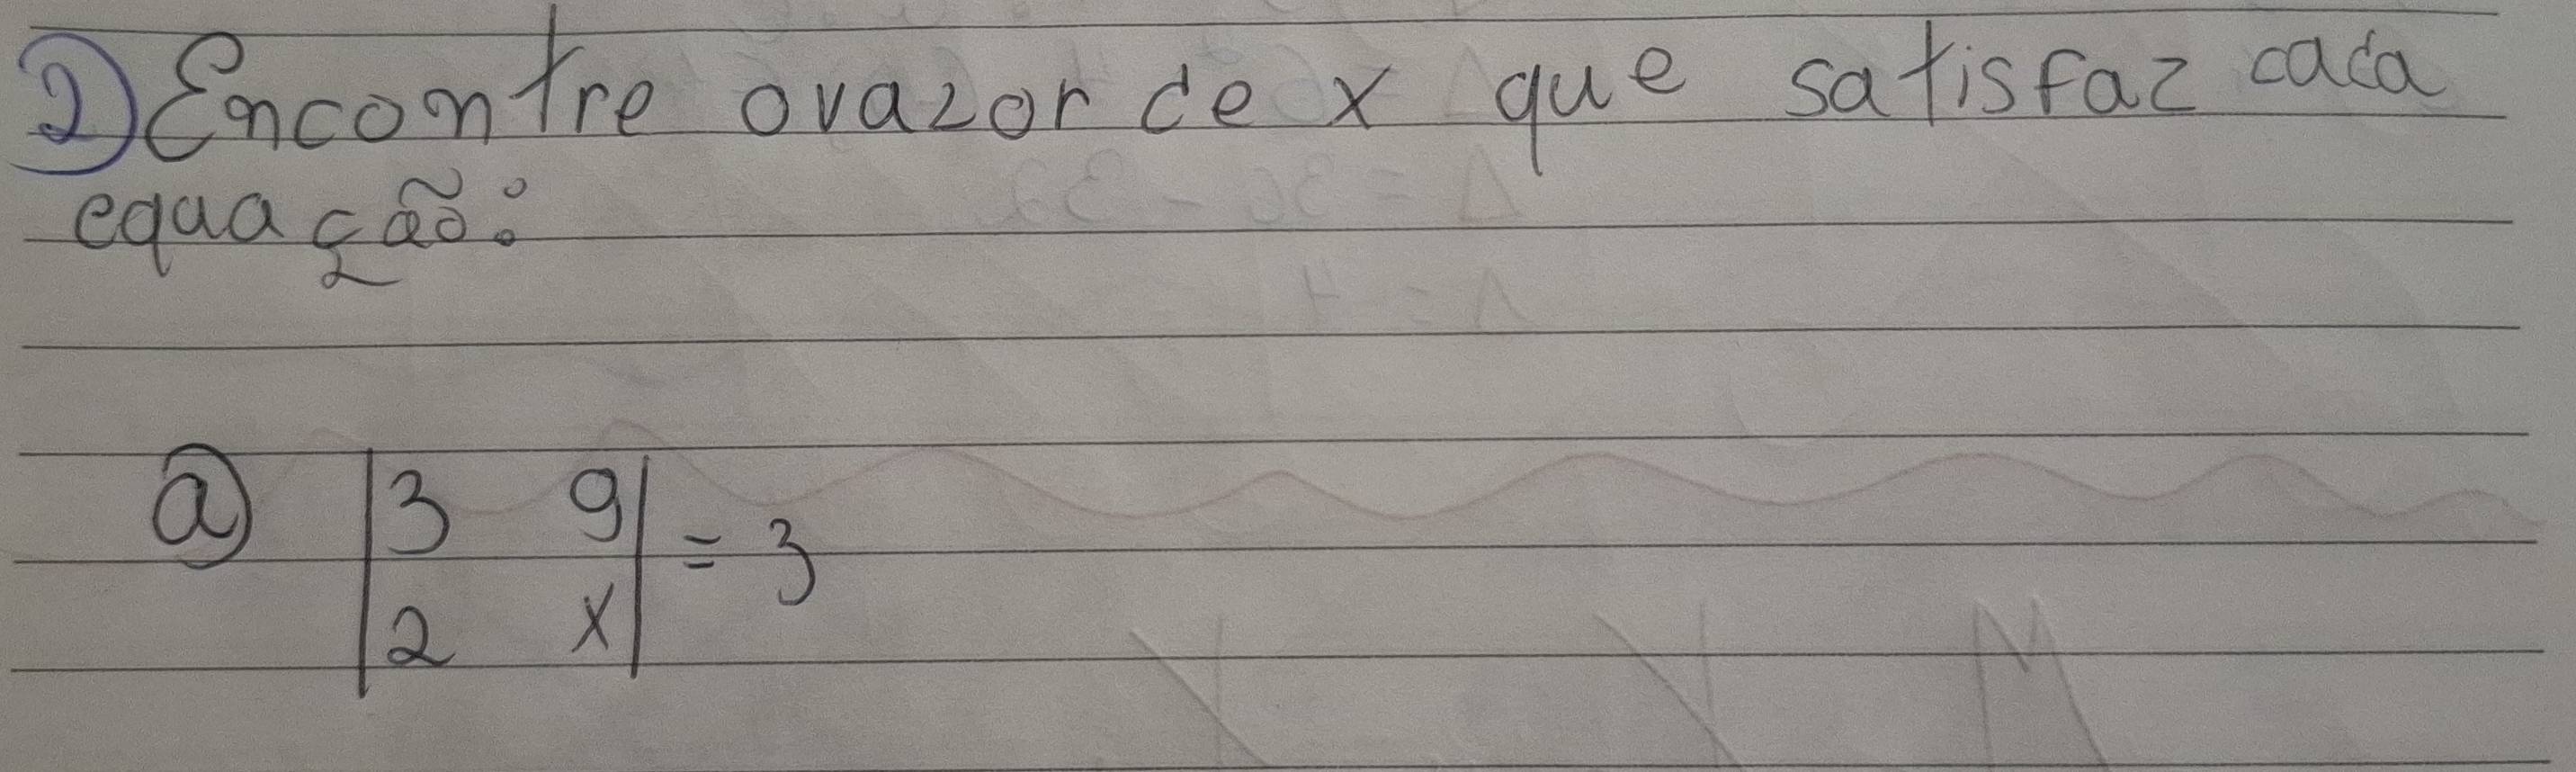 2) Encontre o valor de x que satisfaz cada
equação:
a) |3 9| = 3
|2 x|